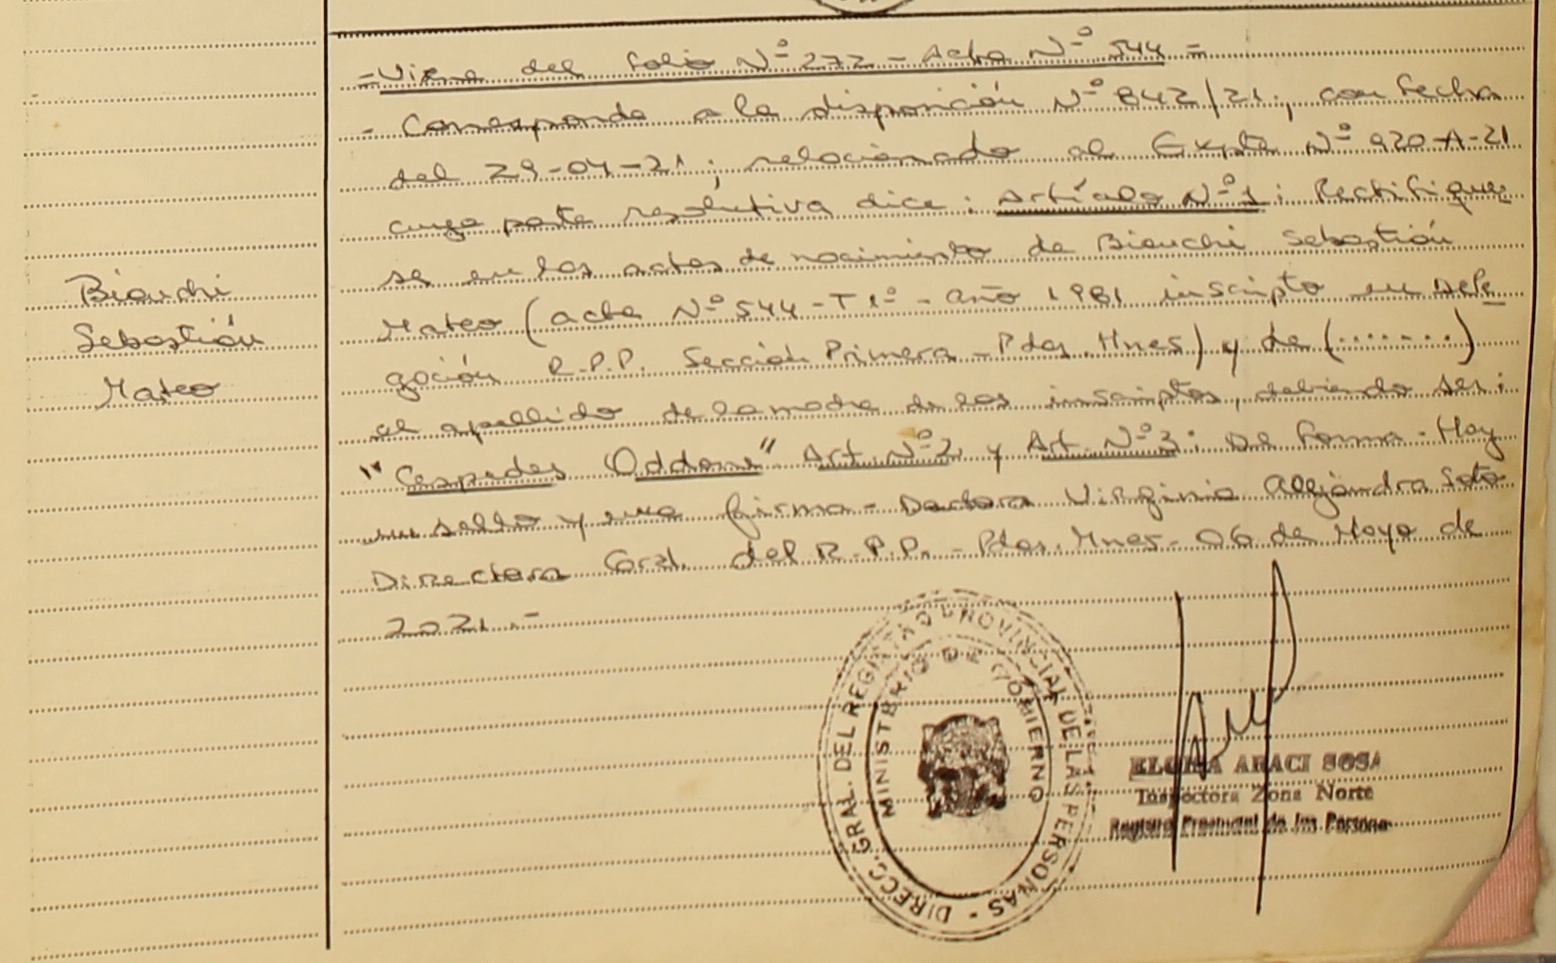 =Viene del folio Nº 272 - Acta Nº 544 =
- Corresponde a la disposición Nº 842/21; con fecha
del 29-04-21; relacionado al Expte Nº 920-A-21
cuya parte resolutiva dice: Artículo Nº 1: Rectifique-
se en los actas de nacimiento de Bianchi Sebastián
Mateo (acta Nº 544 - Tº 1º - año 1981 inscripto en Dele-
gación R.P.P. Sección Primera - Pdas. Mnes) y de (.......)
el apellido de la madre de los inscriptos, debiendo ser:
"Cespedes Oddone" Art. Nº 2 y Art. Nº 3: De forma. Hay
un sello y una firma - Doctora Virginia Alejandra Soto
Directora Gral. del R.P.P. - Pdas. Mnes - 06 de Mayo de
2021.-
Bianchi
Sebastián
Mateo
DIRECC. GRAL. DEL REGISTRO PROVINCIAL DE LAS PERSONAS -
MINISTERIO DE GOBIERNO
ARACI SOSA
Inspectora Zona Norte
Registro Provincial de las Personas